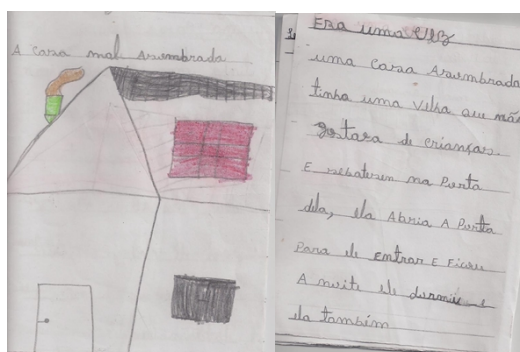 A casa mal Asumbrada
Era uma vez
uma casa Asumbrada
tinha uma velha que não
gostara de crianças.
E sebatesen na Porta
dela, ela Abria A Porta
Para ele entrar E Ficru
A noite ele dormiu e
ela também